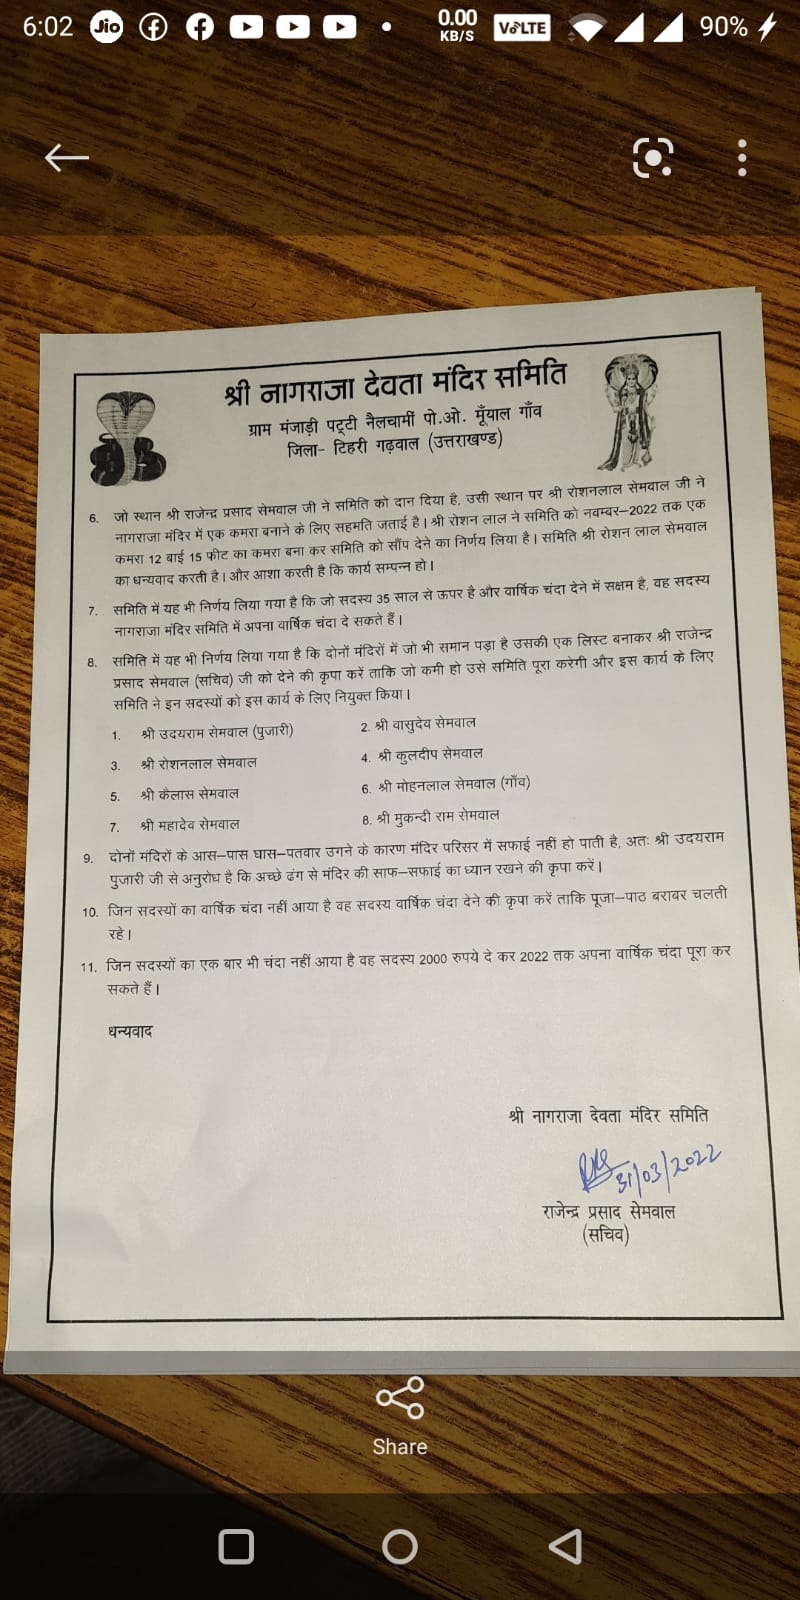 6:02 Jio 0.00 KB/S VoLTE 90%
श्री नागराजा देवता मंदिर समिति
ग्राम मंजाड़ी पट्टी नैलचामीं पो.ओ. मूँयाल गाँव
जिला- टिहरी गढ़वाल (उत्तराखण्ड)
6. जो स्थान श्री राजेन्द्र प्रसाद सेमवाल जी ने समिति को दान दिया है, उसी स्थान पर श्री रोशनलाल सेमवाल जी ने
नागराजा मंदिर में एक कमरा बनाने के लिए सहमति जताई है। श्री रोशन लाल ने समिति को नवम्बर–2022 तक एक
कमरा 12 बाई 15 फीट का कमरा बना कर समिति को सौंप देने का निर्णय लिया है। समिति श्री रोशन लाल सेमवाल
का धन्यवाद करती है। और आशा करती है कि कार्य सम्पन्न हो।
7. समिति में यह भी निर्णय लिया गया है कि जो सदस्य 35 साल से ऊपर है और वार्षिक चंदा देने में सक्षम है, वह सदस्य
नागराजा मंदिर समिति में अपना वार्षिक चंदा दे सकते हैं।
8. समिति में यह भी निर्णय लिया गया है कि दोनों मंदिरों में जो भी समान पड़ा है उसकी एक लिस्ट बनाकर श्री राजेन्द्र
प्रसाद सेमवाल (सचिव) जी को देने की कृपा करें ताकि जो कमी हो उसे समिति पूरा करेगी और इस कार्य के लिए
समिति ने इन सदस्यों को इस कार्य के लिए नियुक्त किया।
1. श्री उदयराम सेमवाल (पुजारी) 2. श्री वासुदेव सेमवाल
3. श्री रोशनलाल सेमवाल 4. श्री कुलदीप सेमवाल
5. श्री कैलास सेमवाल 6. श्री मोहनलाल सेमवाल (गाँव)
7. श्री महादेव सेमवाल 8. श्री मुकन्दी राम सेमवाल
9. दोनों मंदिरों के आस–पास घास–पतवार उगने के कारण मंदिर परिसर में सफाई नहीं हो पाती है, अतः श्री उदयराम
पुजारी जी से अनुरोध है कि अच्छे ढंग से मंदिर की साफ–सफाई का ध्यान रखने की कृपा करें।
10. जिन सदस्यों का वार्षिक चंदा नहीं आया है वह सदस्य वार्षिक चंदा देने की कृपा करें ताकि पूजा–पाठ बराबर चलती
रहे।
11. जिन सदस्यों का एक बार भी चंदा नहीं आया है वह सदस्य 2000 रुपये दे कर 2022 तक अपना वार्षिक चंदा पूरा कर
सकते हैं।
धन्यवाद
श्री नागराजा देवता मंदिर समिति
31/03/2022
राजेन्द्र प्रसाद सेमवाल
(सचिव)
Share